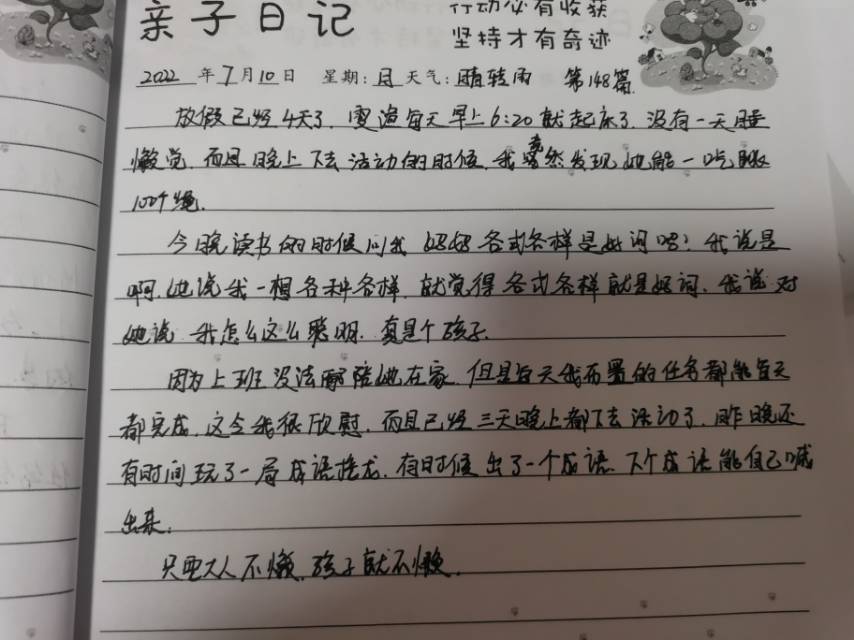 亲子日记
行动必有收获
坚持才有奇迹
2022年7月10日 星期:日 天气:晴转雨 第148篇
放假已经4天了,雯渲每天早上6:20就起床了,没有一天睡
懒觉,而且晚上下去活动的时候,我竟然发现她能一口气跳
100个绳.
今晚读书的时候问我 妈妈各式各样是好词吗?我说是
啊,她说我一想各种各样,就觉得各式各样就是好词,我说对
她说 我怎么这么聪明.真是个孩子.
因为上班没法陪她在家,但是每天我布置的任务都能每天
都完成,这令我很欣慰,而且已经三天晚上都下去活动了,昨晚还
有时间玩了一局成语接龙,有时候出了一个成语,下个成语能自己喊
出来.
只要大人不懒,孩子就不懒.